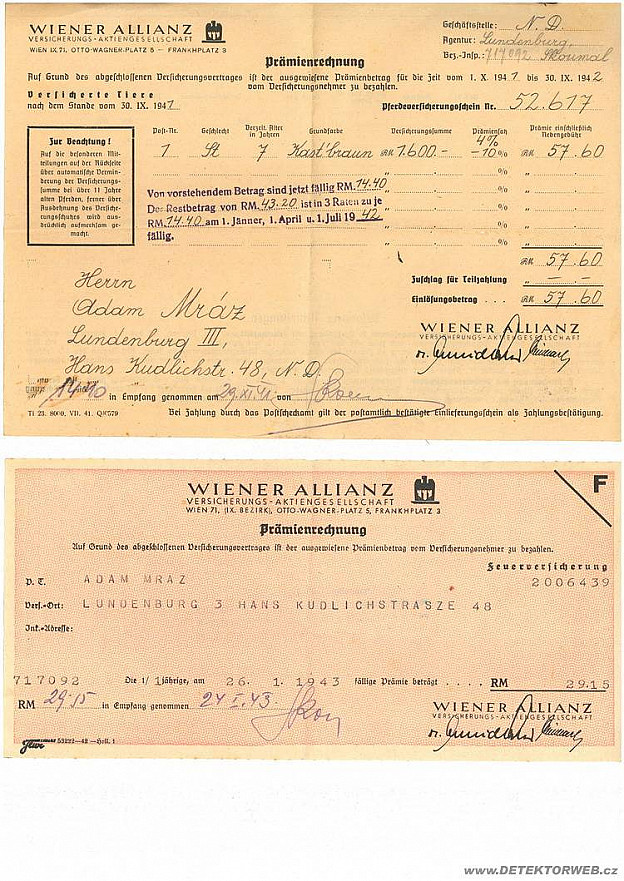 WIENER ALLIANZ
VERSICHERUNGS-AKTIENGESELLSCHAFT
WIEN IX 71, OTTO-WAGNER-PLATZ 5 – FRANKHPLATZ 3
Geschäftsstelle: N. D.
Agentur: Lundenburg
Bez.-Insp.: 717092 Skoumal
Prämienrechnung
Auf Grund des abgeschlossenen Versicherungsvertrages ist der ausgewiesene Prämienbetrag für die Zeit vom 1. X. 1941 bis 30. IX. 1942
vom Versicherungsnehmer zu bezahlen.
Versicherte Tiere
nach dem Stande vom 30. IX. 1941
Pferdeversicherungsschein Nr. 52.617
Zur Beachtung!
Auf die besonderen Mitteilungen auf der Rückseite
über automatische Verminderung der Versicherungssumme bei über 11 Jahre
alten Pferden, ferner über
Ausdehnung des Versicherungsschutzes wird ausdrücklich aufmerksam gemacht.
Post-Nr. Geschlecht Derzeit. Alter in Jahren Grundfarbe Versicherungssumme Prämiensatz Prämie einschließlich Nebengebühr
1 St 7 Kast'braun RM 1.600.- 4% -10% RM 57.60
Von vorstehendem Betrag sind jetzt fällig RM. 14.40
Der Restbetrag von RM. 43.20 ist in 3 Raten zu je
RM. 14.40 am 1. Jänner, 1. April u. 1. Juli 1942
fällig.
RM 57.60
Zuschlag für Teilzahlung " —.—
Einlösungsbetrag . . . RM 57.60
Herrn
Adam Mráz
Lundenburg III,
Hans Kudlichstr. 48, N. D.
WIENER ALLIANZ
VERSICHERUNGS-AKTIENGESELLSCHAFT
14.40 in Empfang genommen am 29. XI. 41 von
TI 23. 8000. VII. 41. QW579
Bei Zahlung durch das Postscheckamt gilt der postamtlich bestätigte Einlieferungsschein als Zahlungsbestätigung.
WIENER ALLIANZ
VERSICHERUNGS-AKTIENGESELLSCHAFT
WIEN 71, (IX. BEZIRK), OTTO-WAGNER-PLATZ 5, FRANKHPLATZ 3
F
Prämienrechnung
Auf Grund des abgeschlossenen Versicherungsvertrages ist der ausgewiesene Prämienbetrag vom Versicherungsnehmer zu bezahlen.
Feuerversicherung
2006439
P. T. ADAM MRAZ
Vers.-Ort: LUNDENBURG 3 HANS KUDLICHSTRASZE 48
Ink.-Adresse:
717092 Die 1/1 jährige, am 26. 1. 1943 fällige Prämie beträgt . . . . RM 29.15
RM 29.15 in Empfang genommen 24. I. 43.
WIENER ALLIANZ
VERSICHERUNGS-AKTIENGESELLSCHAFT
53222—42—Holl. 1
www.DETEKTORWEB.cz